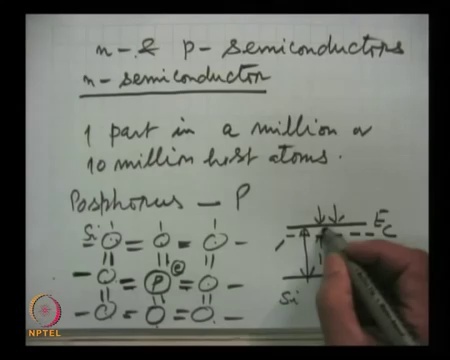 n- & p- semiconductors
n- semiconductor
1 part in a million or
10 million host atoms.
Posphorus — P
Si
P e
Ec
Si
NPTEL